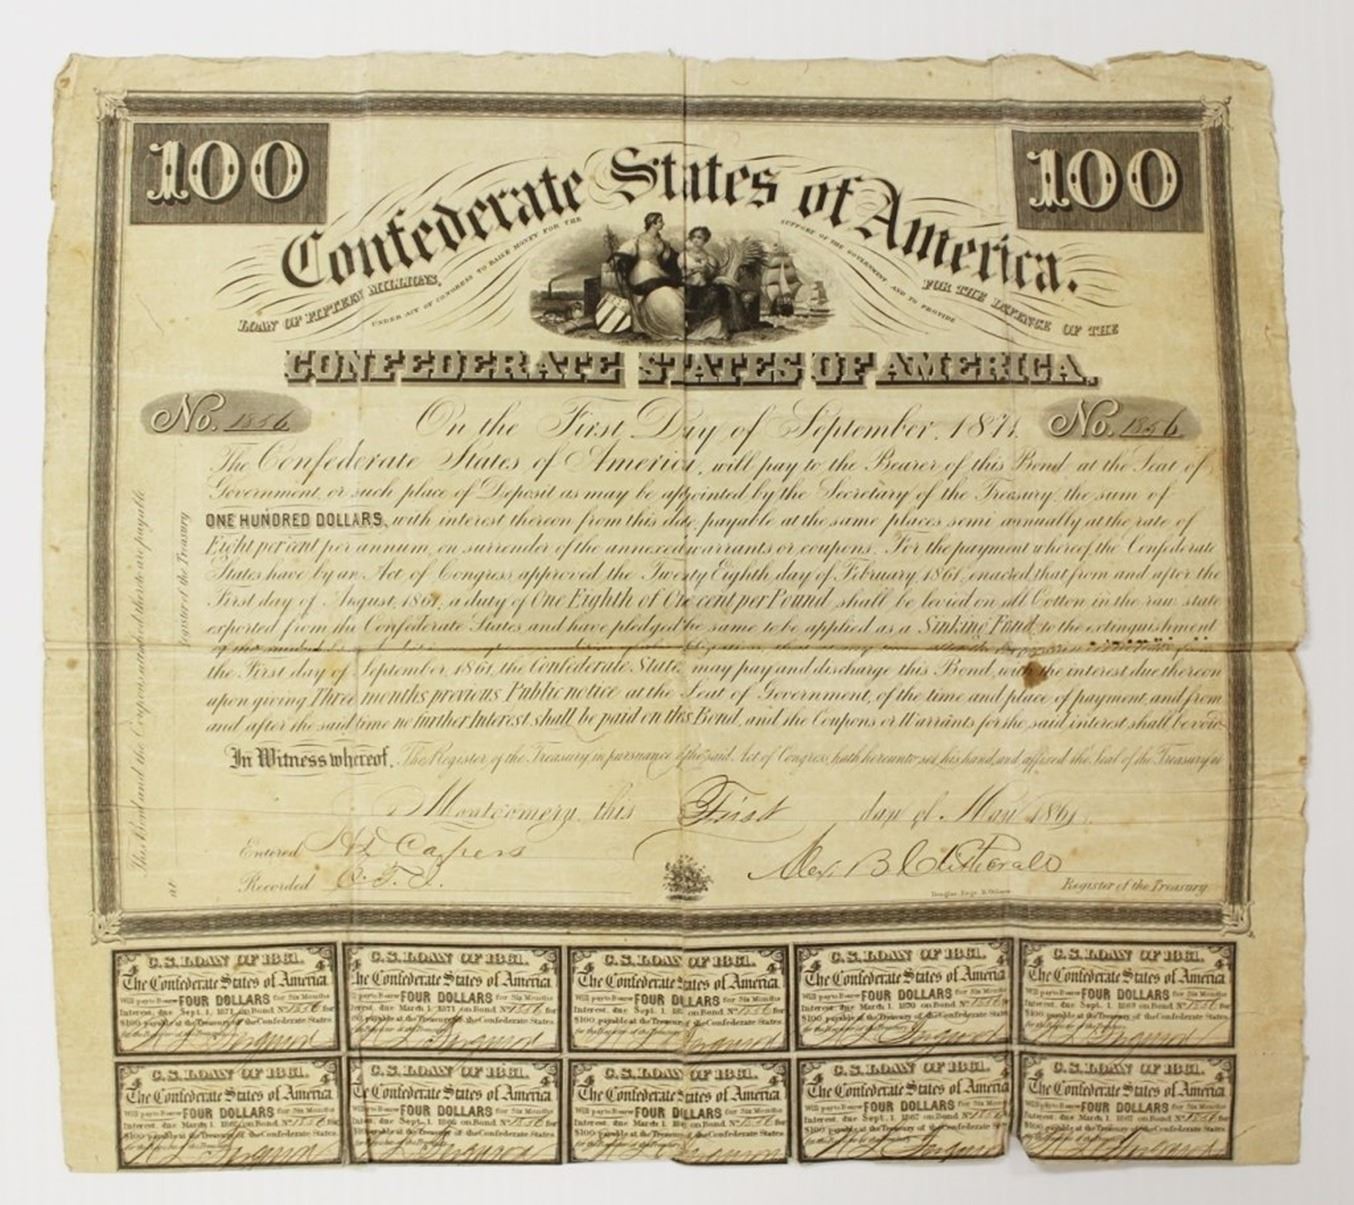 100
100
Confederate States of America.
LOAN OF FIFTEEN MILLIONS,
UNDER ACT OF CONGRESS TO RAISE MONEY FOR THE
SUPPORT OF THE GOVERNMENT AND TO PROVIDE
FOR THE DEFENCE OF THE
CONFEDERATE STATES OF AMERICA.
No. 1856
No. 1856
On the First Day of September, 1871.
The Confederate States of America, will pay to the Bearer of this Bond at the Seat of
Government, or such place of Deposit as may be appointed by the Secretary of the Treasury, the sum of
ONE HUNDRED DOLLARS, with interest thereon from this date, payable at the same places semi annually at the rate of
Eight per cent per annum, on surrender of the annexed warrants or coupons. For the payment whereof, the Confederate
States have by an Act of Congress approved the Twenty Eighth day of February, 1861, enacted, that from and after the
First day of August, 1861, a duty of One Eighth of One cent per Pound shall be levied on all Cotton in the raw state
exported from the Confederate States, and have pledged the same to be applied as a Sinking Fund to the extinguishment
the First day of September 1861, the Confederate States may pay and discharge this Bond, with the interest due thereon
upon giving Three months previous Public notice at the Seat of Government, of the time and place of payment, and from
and after the said time no further Interest shall be paid on this Bond, and the Coupons or Warrants for the said interest shall be void.
In Witness whereof, The Register of the Treasury in pursuance of the said Act of Congress, hath hereunto set his hand, and affixed the Seal of the Treasury at
Montgomery, this First day of May 1861.
Entered H D Capers
Recorded C.T.J.
Alex. B. Clitherall
Register of the Treasury
Douglas, Engr. N. Orleans
This Bond and the Coupons attached thereto are payable
at
Register of the Treasury
C.S. LOAN OF 1861.
The Confederate States of America
Will pay to Bearer FOUR DOLLARS for Six Months
Interest, due Sept. 1. 1871, on Bond No 1856 for
$100 payable at the Treasury of the Confederate States.
C.S. LOAN OF 1861.
The Confederate States of America
pay to Bearer FOUR DOLLARS for Six Months
Interest, due March 1. 1871, on Bond No 1856 for
$100 payable at the Treasury of the Confederate States.
C.S. LOAN OF 1861.
The Confederate States of America
Will pay to Bearer FOUR DOLLARS for Six Months
Interest, due Sept. 1. on Bond No 1856 for
$100 payable at the Treasury of the Confederate States.
C.S. LOAN OF 1861.
The Confederate States of America
Will pay to Bearer FOUR DOLLARS for Six Months
Interest, due March 1. 1870 on Bond No 1856 for
$100 payable at the Treasury of the Confederate States.
C.S. LOAN OF 1861.
The Confederate States of America
Will pay to Bearer FOUR DOLLARS for Six Months
Interest, due Sept. 1. on Bond No 1856 for
$100 payable at the Treasury of the Confederate States.
C.S. LOAN OF 1861.
The Confederate States of America
Will pay to Bearer FOUR DOLLARS for Six Months
Interest, due March 1. on Bond No 1856 for
$100 payable at the Treasury of the Confederate States.
C.S. LOAN OF 1861.
The Confederate States of America
Will pay to Bearer FOUR DOLLARS for Six Months
Interest, due Sept. 1. 1866 on Bond No 1856 for
$100 payable at the Treasury of the Confederate States.
C.S. LOAN OF 1861.
The Confederate States of America
Will pay to Bearer FOUR DOLLARS for Six Months
Interest, due March 1. on Bond No 1856 for
$100 payable at the Treasury of the Confederate States.
C.S. LOAN OF 1861.
The Confederate States of America
Will pay to Bearer FOUR DOLLARS for Six Months
Interest, due Sept. 1. 1867 on Bond No 1856 for
$100 payable at the Treasury of the Confederate States.
C.S. LOAN OF 1861.
The Confederate States of America
Will pay to Bearer FOUR DOLLARS for Six Months
Interest, due March 1. 1867 on Bond No 1856 for
$100 payable at the Treasury of the Confederate States.